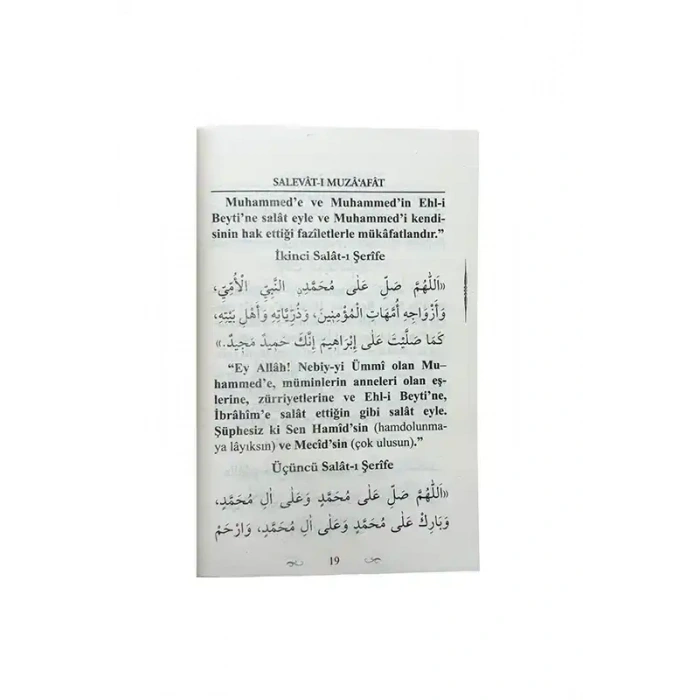 SALEVÂT-I MUZÂ'AFÂT
Muhammed'e ve Muhammed'in Ehl-i
Beyti'ne salât eyle ve Muhammed'i kendi-
sinin hak ettiği fazîletlerle mükâfatlandır."
İkinci Salât-ı Şerîfe
«اَللّٰهُمَّ صَلِّ عَلٰى مُحَمَّدٍ، النَّبِيِّ الْأُمِّيِّ،
وَأَزْوَاجِهِ أُمَّهَاتِ الْمُؤْمِنِينَ، وَذُرِّيَّاتِهِ وَأَهْلِ بَيْتِهِ،
كَمَا صَلَّيْتَ عَلٰى إِبْرَاهِيمَ إِنَّكَ حَمِيدٌ مَجِيدٌ.»
"Ey Allâh! Nebiy-yi Ümmî olan Mu–
hammed'e, müminlerin anneleri olan eş-
lerine, zürriyetlerine ve Ehl-i Beyti'ne,
İbrâhîm'e salât ettiğin gibi salât eyle.
Şüphesiz ki Sen Hamîd'sin (hamdolunma-
ya lâyıksın) ve Mecîd'sin (çok ulusun)."
Üçüncü Salât-ı Şerîfe
«اَللّٰهُمَّ صَلِّ عَلٰى مُحَمَّدٍ وَعَلٰى اٰلِ مُحَمَّدٍ،
وَبَارِكْ عَلٰى مُحَمَّدٍ وَعَلٰى اٰلِ مُحَمَّدٍ، وَارْحَمْ
19